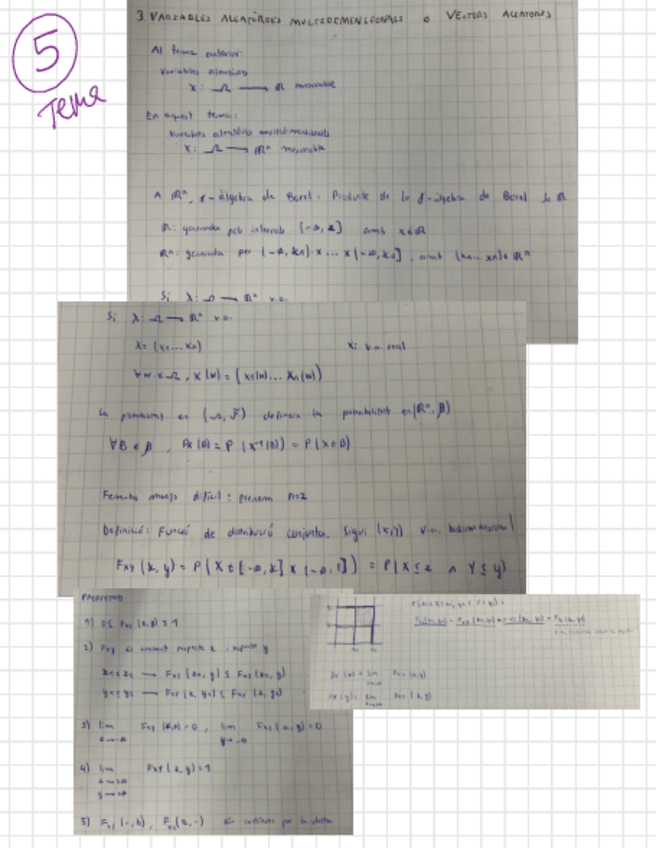 5
Tema
3 VARIABLES ALEATÒRIES MULTIDIMENSIONALS o VECTORS ALEATORIS
Al tema anterior:
Variables aleatòries
X: Ω → ℝ mesurable
En aquest tema:
Variables aleatòries multidimensionals
X: Ω → ℝⁿ mesurable
A ℝⁿ, σ-àlgebra de Borel: Producte de la σ-àlgebra de Borel de ℝ
ℝ: generada pels intervals (-∞, x] amb x∈ℝ
ℝⁿ: generada per (-∞, x1] x ... x (-∞, xn], amb (x1, ... xn)∈ ℝⁿ
Si X: Ω → ℝⁿ v.a.
Si X: Ω → ℝⁿ v.a.
X = (X1 ... Xn) Xi v.a. real
∀w ∈ Ω, X(w) = (X1(w) ... Xn(w))
La probabilitat en (Ω, F) defineix la probabilitat en (ℝⁿ, β)
∀B ∈ β, Px(B) = P(X⁻¹(B)) = P(X∈B)
difícil: prenem n=2
Definició: Funció de distribució conjunta. Sigui (X,Y) v.a. bidimensional
Fxy(x, y) = P(X ∈ (-∞, x] x (-∞, y]) = P(X ≤ x ∧ Y ≤ y)
PROPIETATS
1) 0 ≤ Fxy(x, y) ≤ 1
2) Fxy és creixent respecte x, respecte y
x1 ≤ x2 → Fxy(x1, y) ≤ Fxy(x2, y)
y1 ≤ y2 → Fxy(x, y1) ≤ Fxy(x, y2)
3) lim Fxy(x, y) = 0, lim Fxy(x, y) = 0
4) lim Fxy(x, y) = 1
5) Fxy(·, b), Fxy(a, ·) són contínues per la dreta
Fx(x) = lim Fxy(x, y)
Fy(y) = lim Fxy(x, y)